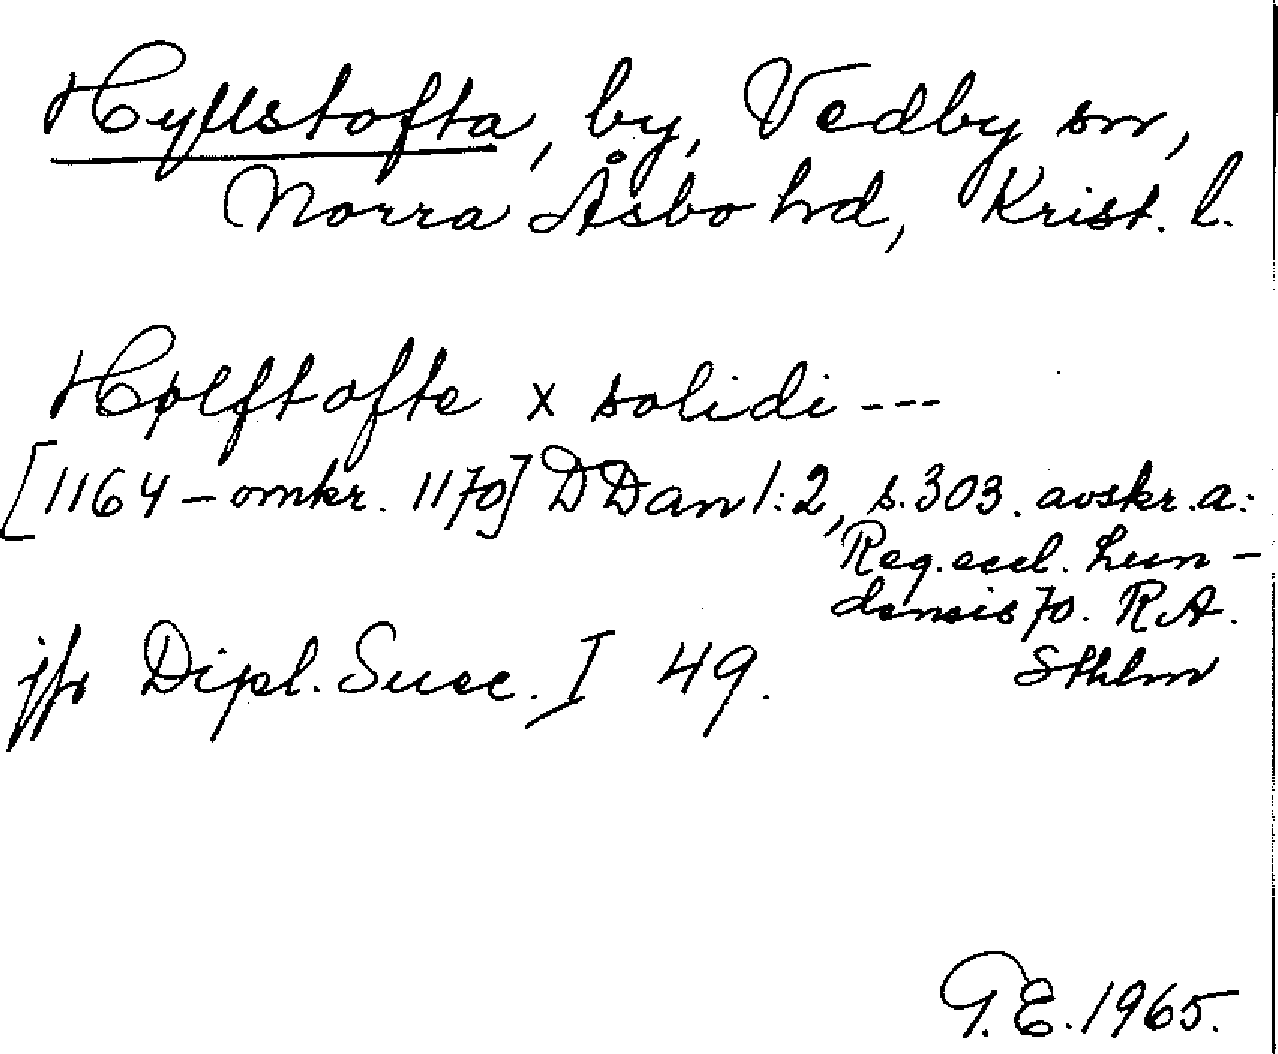 Hyllstofta, by, Vedby sn,
Norra Åsbo hd, Krist. l.
Hølftofte x solidi ---
[1164 – omkr. 1170] DDan 1:2, s. 303. avskr. a:
Reg. eccl. Lun-
densis 70. RA.
Sthlm
jfr Dipl. Suec. I 49.
G.E. 1965.